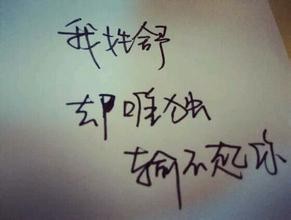 我姓舒
却唯独
输不起你